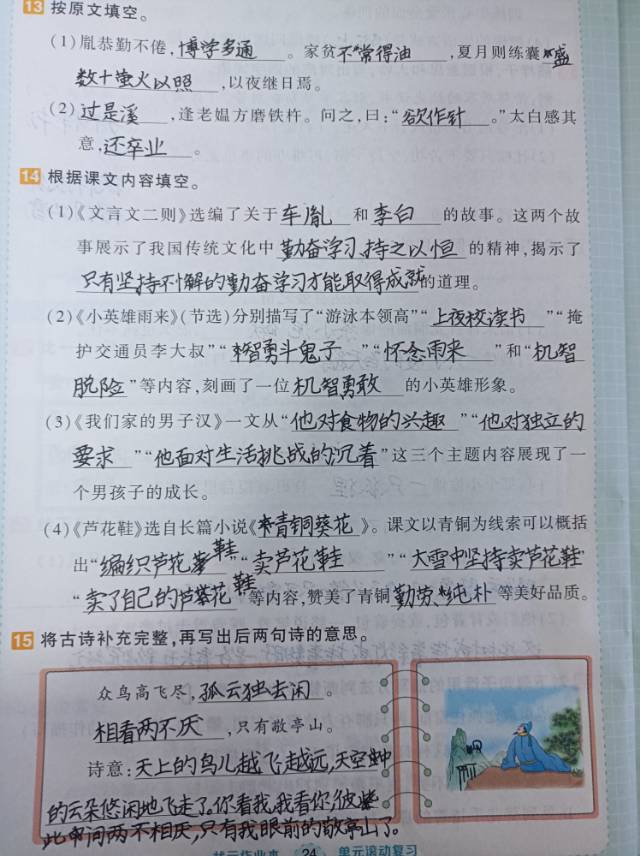 13 按原文填空。
(1)胤恭勤不倦,博学多通。家贫不常得油,夏月则练囊盛
数十萤火以照,以夜继日焉。
(2)过是溪,逢老媪方磨铁杵。问之,曰:“欲作针。”太白感其
意,还卒业。
14 根据课文内容填空。
(1)《文言文二则》选编了关于车胤和李白的故事。这两个故
事展示了我国传统文化中勤奋学习,持之以恒的精神,揭示了
只有坚持不懈的勤奋学习才能取得成就的道理。
(2)《小英雄雨来》(节选)分别描写了“游泳本领高”“上夜校读书”“掩
护交通员李大叔”“智勇斗鬼子”“怀念雨来”和“机智
脱险”等内容,刻画了一位机智勇敢的小英雄形象。
(3)《我们家的男子汉》一文从“他对食物的兴趣”“他对独立的
要求”“他面对生活挑战的沉着”这三个主题内容展现了一
个男孩子的成长。
(4)《芦花鞋》选自长篇小说《青铜葵花》。课文以青铜为线索可以概括
出“编织芦花鞋”“卖芦花鞋”“大雪中坚持卖芦花鞋”
“卖了自己的芦花鞋”等内容,赞美了青铜勤劳、纯朴等美好品质。
15 将古诗补充完整,再写出后两句诗的意思。
众鸟高飞尽,孤云独去闲。
相看两不厌,只有敬亭山。
诗意:天上的鸟儿越飞越远,天空中
的云朵悠闲地飞走了。你看我,我看你,彼
此中间两不相厌,只有我眼前的敬亭山了。
24 单元滚动复习